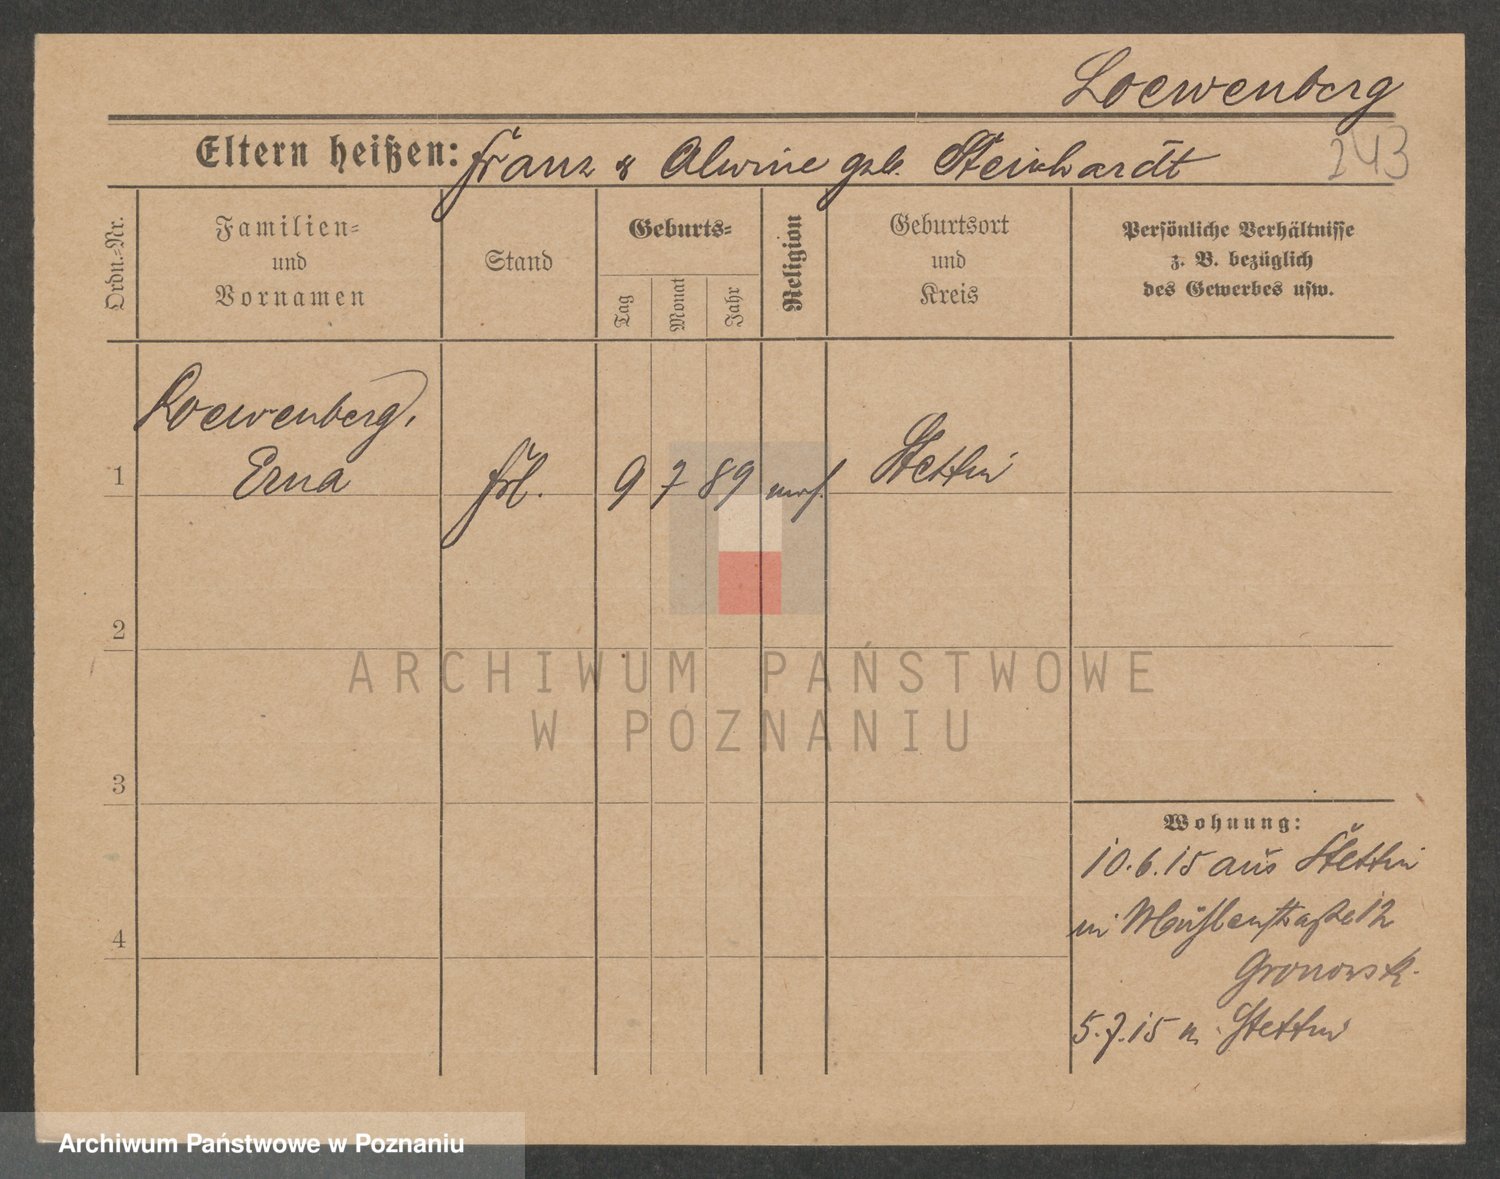 Loewenberg
Eltern heißen: Franz & Alwine geb. Steinhardt
243
Ordn.-Nr.
Familien-
und
Vornamen
Stand
Geburts-
Tag
Monat
Jahr
Religion
Geburtsort
und
Kreis
Persönliche Verhältnisse
z. B. bezüglich
des Gewerbes usw.
Loewenberg,
1 Erna Frl. 9 7 89 mos. Stettin
2
ARCHIWUM PAŃSTWOWE
W POZNANIU
3
Wohnung:
10.6.15 aus Stettin
in Mühlenstraße 12
Gronowsk.
4
5.7.15 n. Stettin
Archiwum Państwowe w Poznaniu